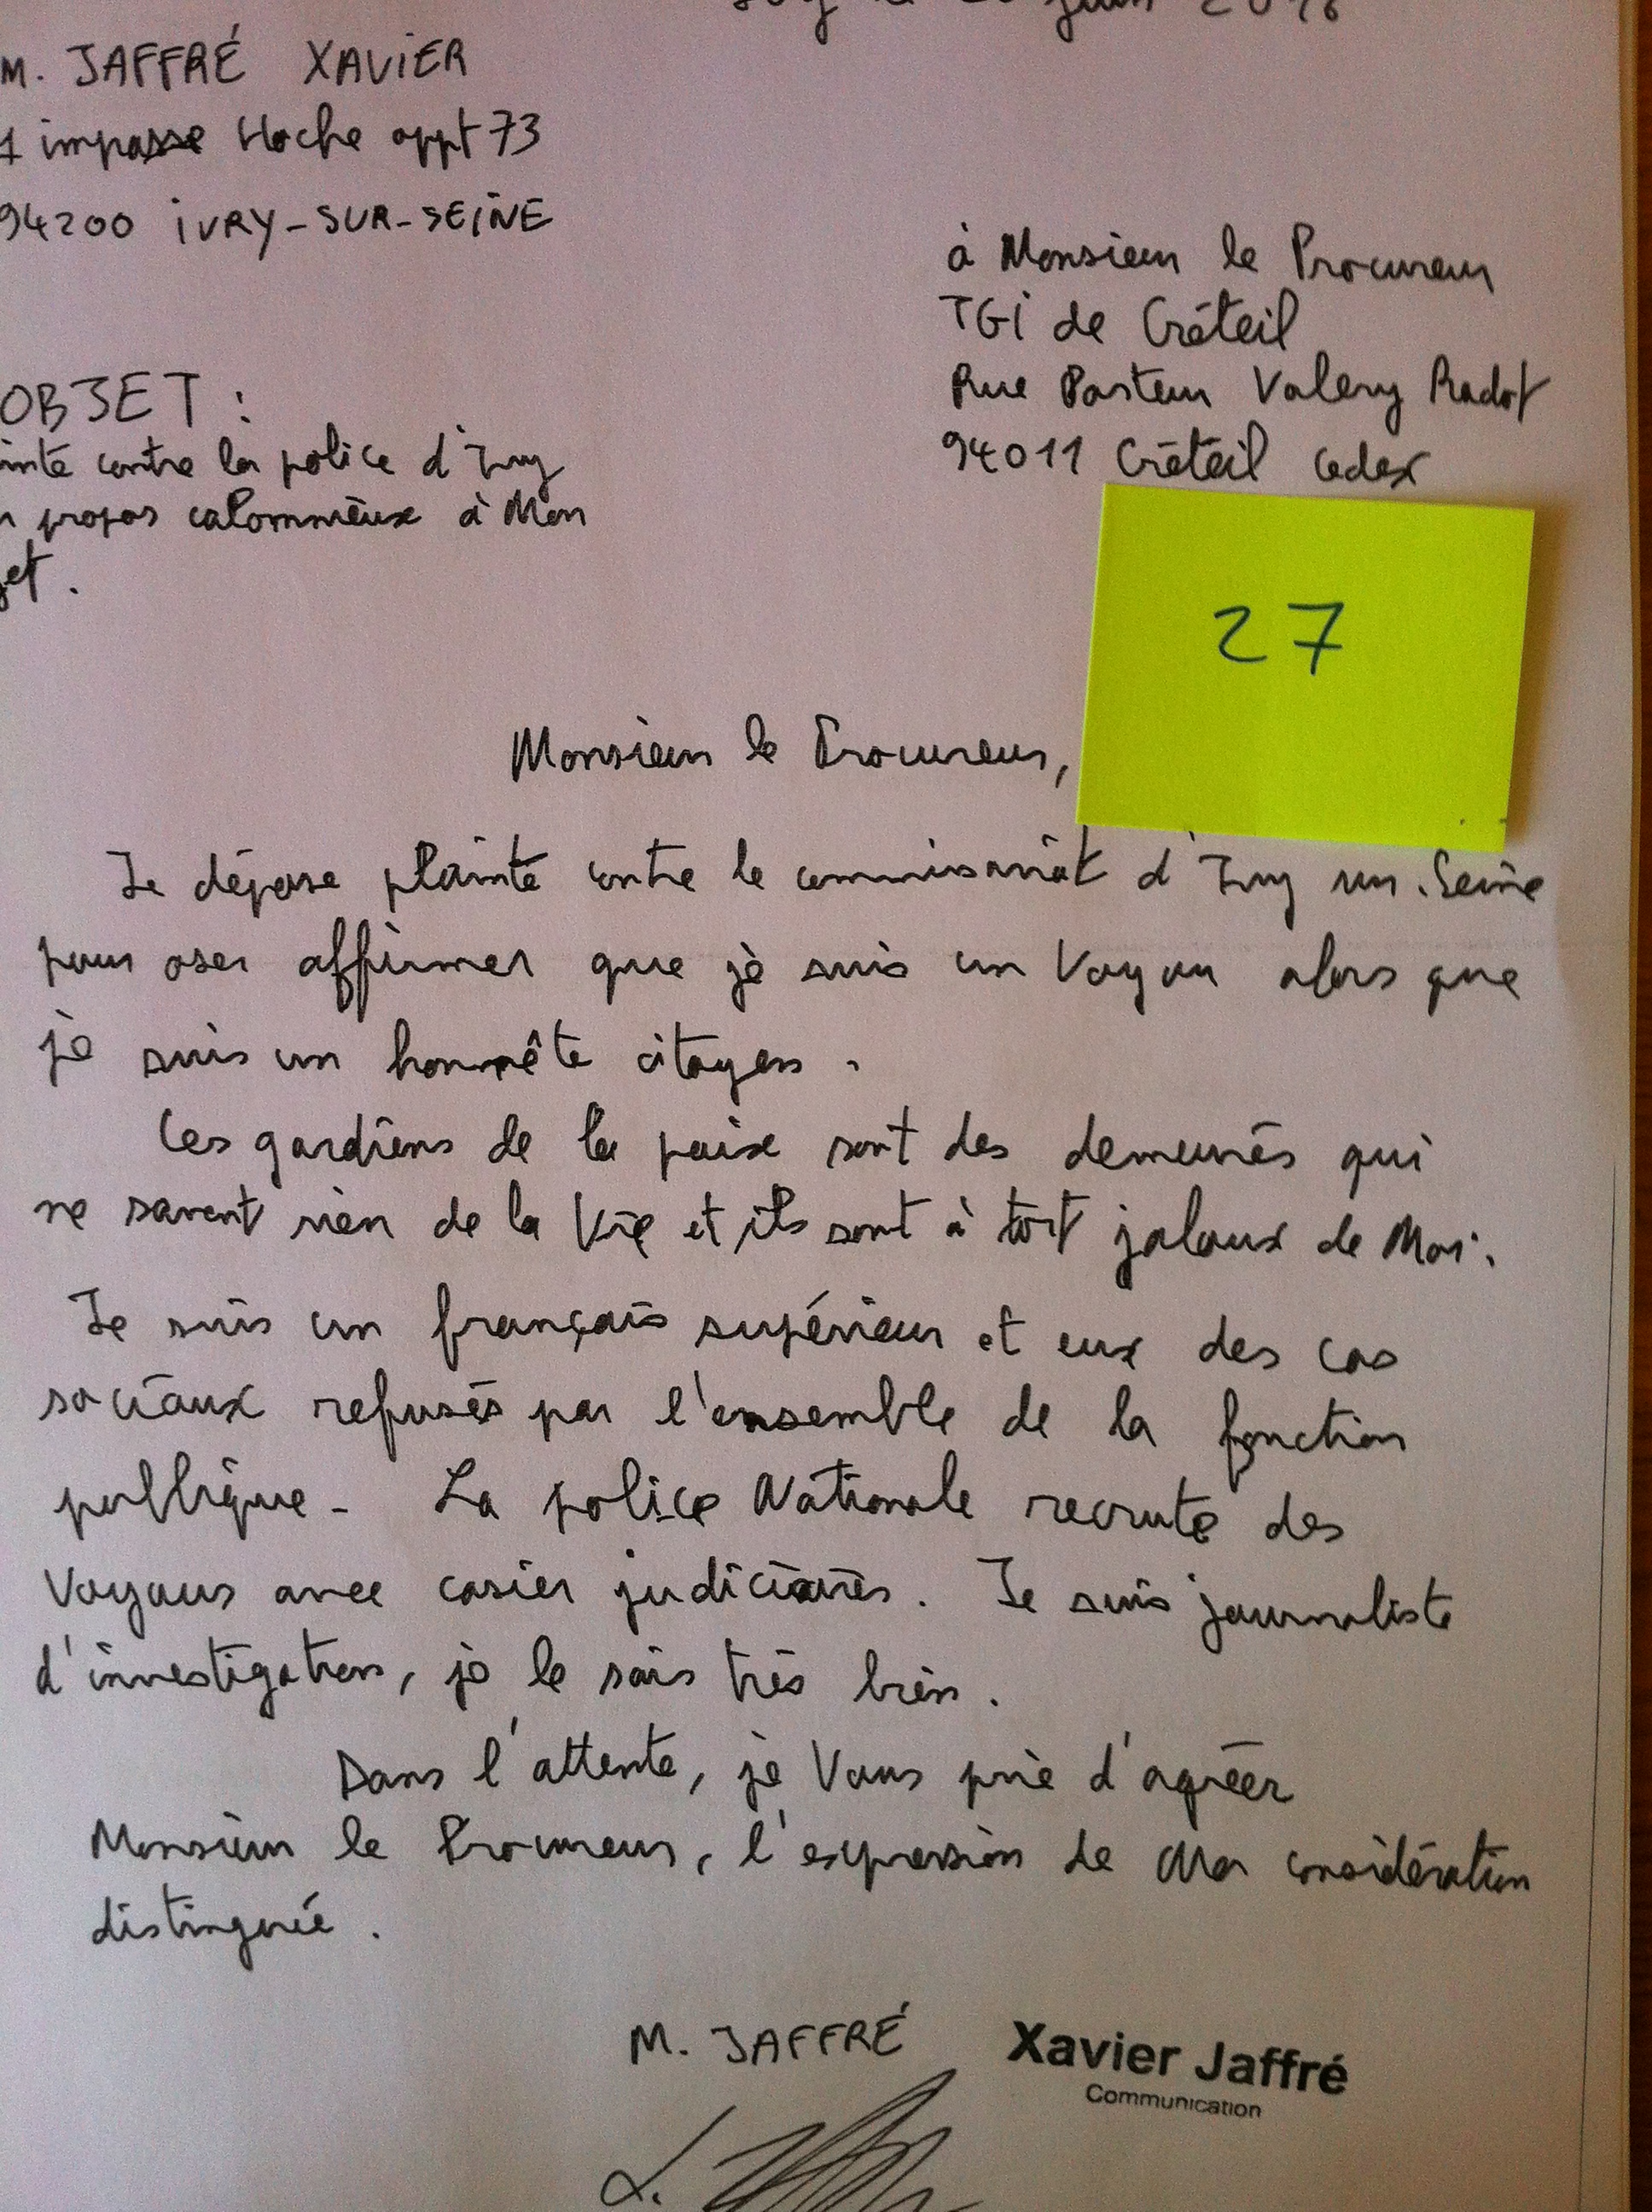 juin 2018
M. JAFFRÉ XAVIER
1 impasse Hoche appt 73
94200 IVRY-SUR-SEINE
à Monsieur le Procureur
TGI de Créteil
Rue Pasteur Valery Radot
94011 Créteil cedex
OBJET :
contre la police d'Ivry
propos calomnieux à Mon
27
Monsieur le Procureur,
Je dépose plainte contre le commissariat d'Ivry sur.Seine
pour oser affirmer que je suis un Voyou alors que
je suis un honnête citoyen.
Ces gardiens de la paix sont des demeurés qui
ne savent rien de la Vie et ils sont à tort jaloux de Moi.
Je suis un français supérieur et eux des cas
sociaux refusés par l'ensemble de la fonction
publique - La police Nationale recrute des
Voyous avec casier judiciaires. Je suis journaliste
d'investigation, je le sais très bien.
Dans l'attente, je Vous prie d'agréer
Monsieur le Procureur, l'expression de Ma considération
distinguée.
M. JAFFRÉ
Xavier Jaffré
Communication